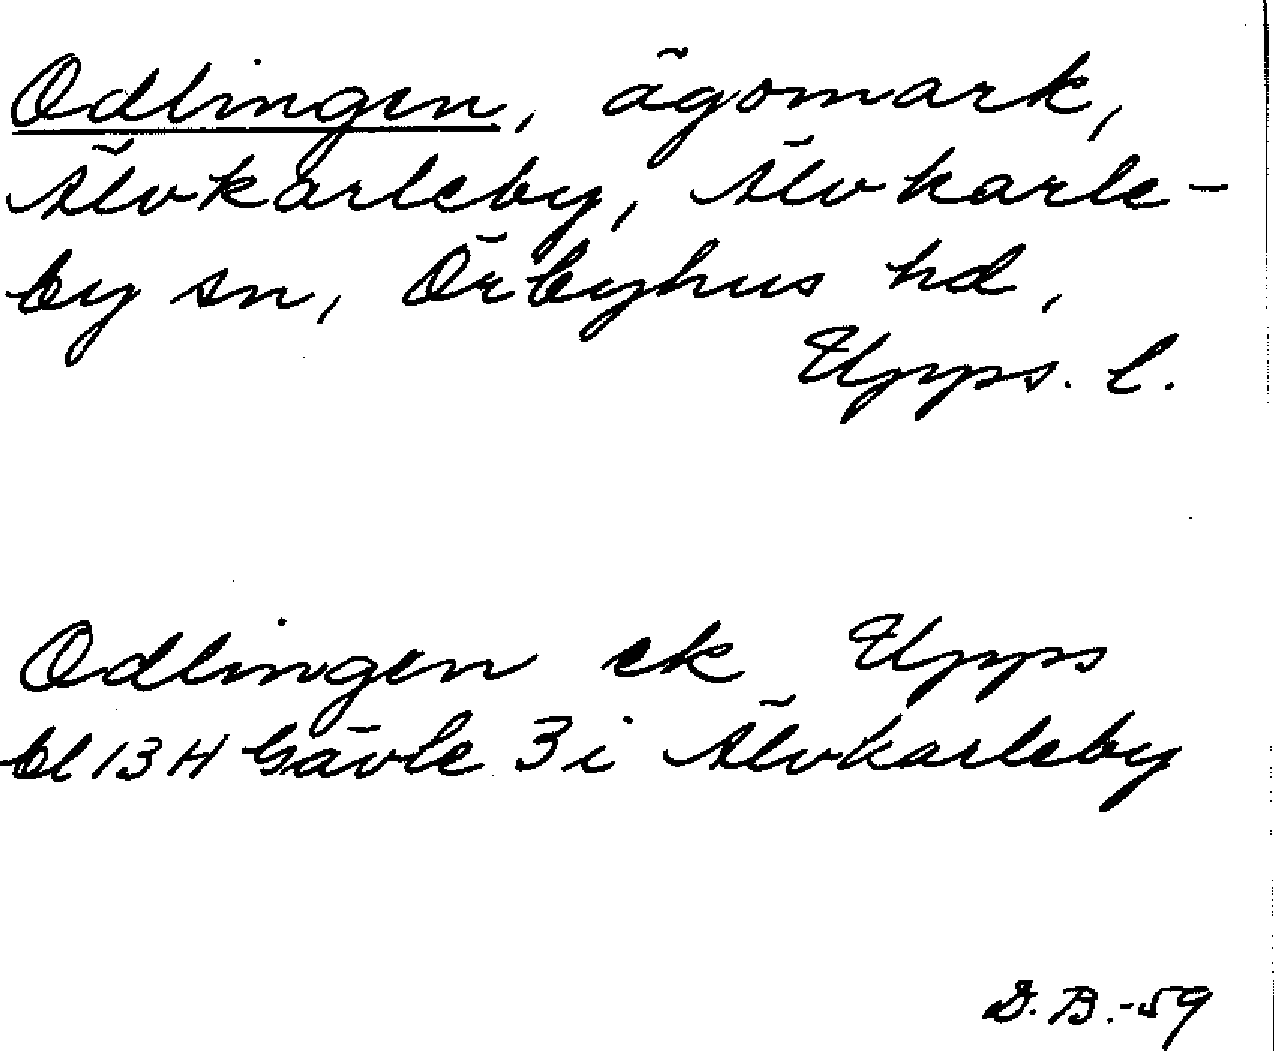 Odlingen, ägomark,
Älvkarleby, Älvkarle-
by sn, Örbyhus hd,
Upps. l.
Odlingen ek Upps
bl 13 H Gävle 3 i Älvkarleby
D. B. -59